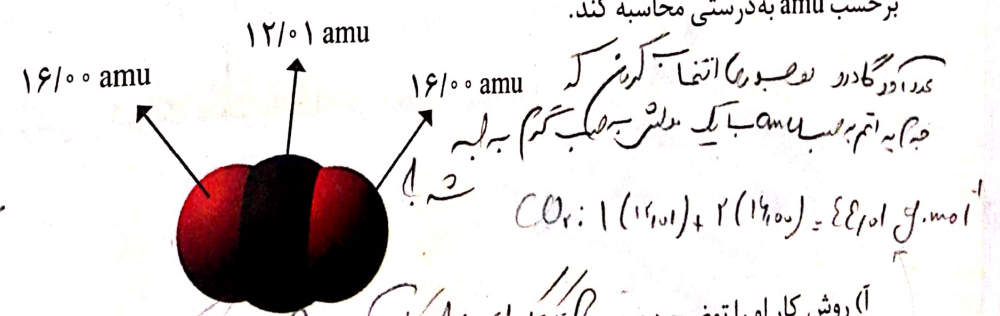 برحسب amu به‌درستی محاسبه کند.
۱۲/۰۱ amu
۱۶/۰۰ amu
۱۶/۰۰ amu
عدد آووگادرو طوری انتخاب کردن که
جرم یه اتم برحسب amu با یک مولش برحسب گرم برابر
شه!
CO۲: ۱(۱۲٫۰۱) + ۲(۱۶٫۰۰) = ۴۴٫۰۱ g.mol⁻¹
آ) روش کار او را